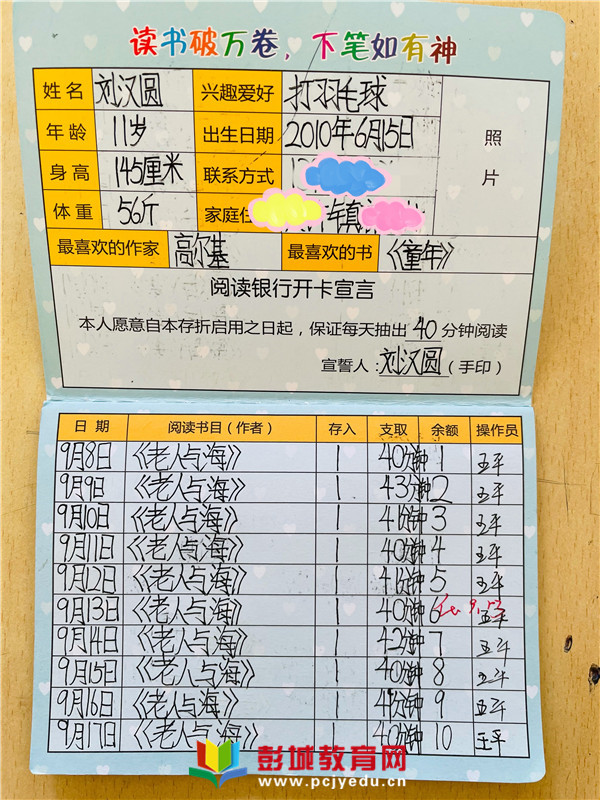 读书破万卷，下笔如有神
姓名 刘汉圆 兴趣爱好 打羽毛球
年龄 11岁 出生日期 2010年6月15日 照
身高 145厘米 联系方式 片
体重 56斤 家庭住 镇
最喜欢的作家 高尔基 最喜欢的书 《童年》
阅读银行开卡宣言
本人愿意自本存折启用之日起，保证每天抽出 40 分钟阅读
宣誓人：刘汉圆（手印）
日期 阅读书目（作者） 存入 支取 余额 操作员
9月8日 《老人与海》 1 40分钟 1 王平
9月9日 《老人与海》 1 43分钟 2 王平
9月10日 《老人与海》 1 41分钟 3 王平
9月11日 《老人与海》 1 40分钟 4 王平
9月12日 《老人与海》 1 41分钟 5 王平
9月13日 《老人与海》 1 40分钟 6 王平
9月14日 《老人与海》 1 42分钟 7 王平
9月15日 《老人与海》 1 40分钟 8 王平
9月16日 《老人与海》 1 41分钟 9 王平
9月17日 《老人与海》 1 40分钟 10 王平
彭城教育网
www.pcjyedu.cn